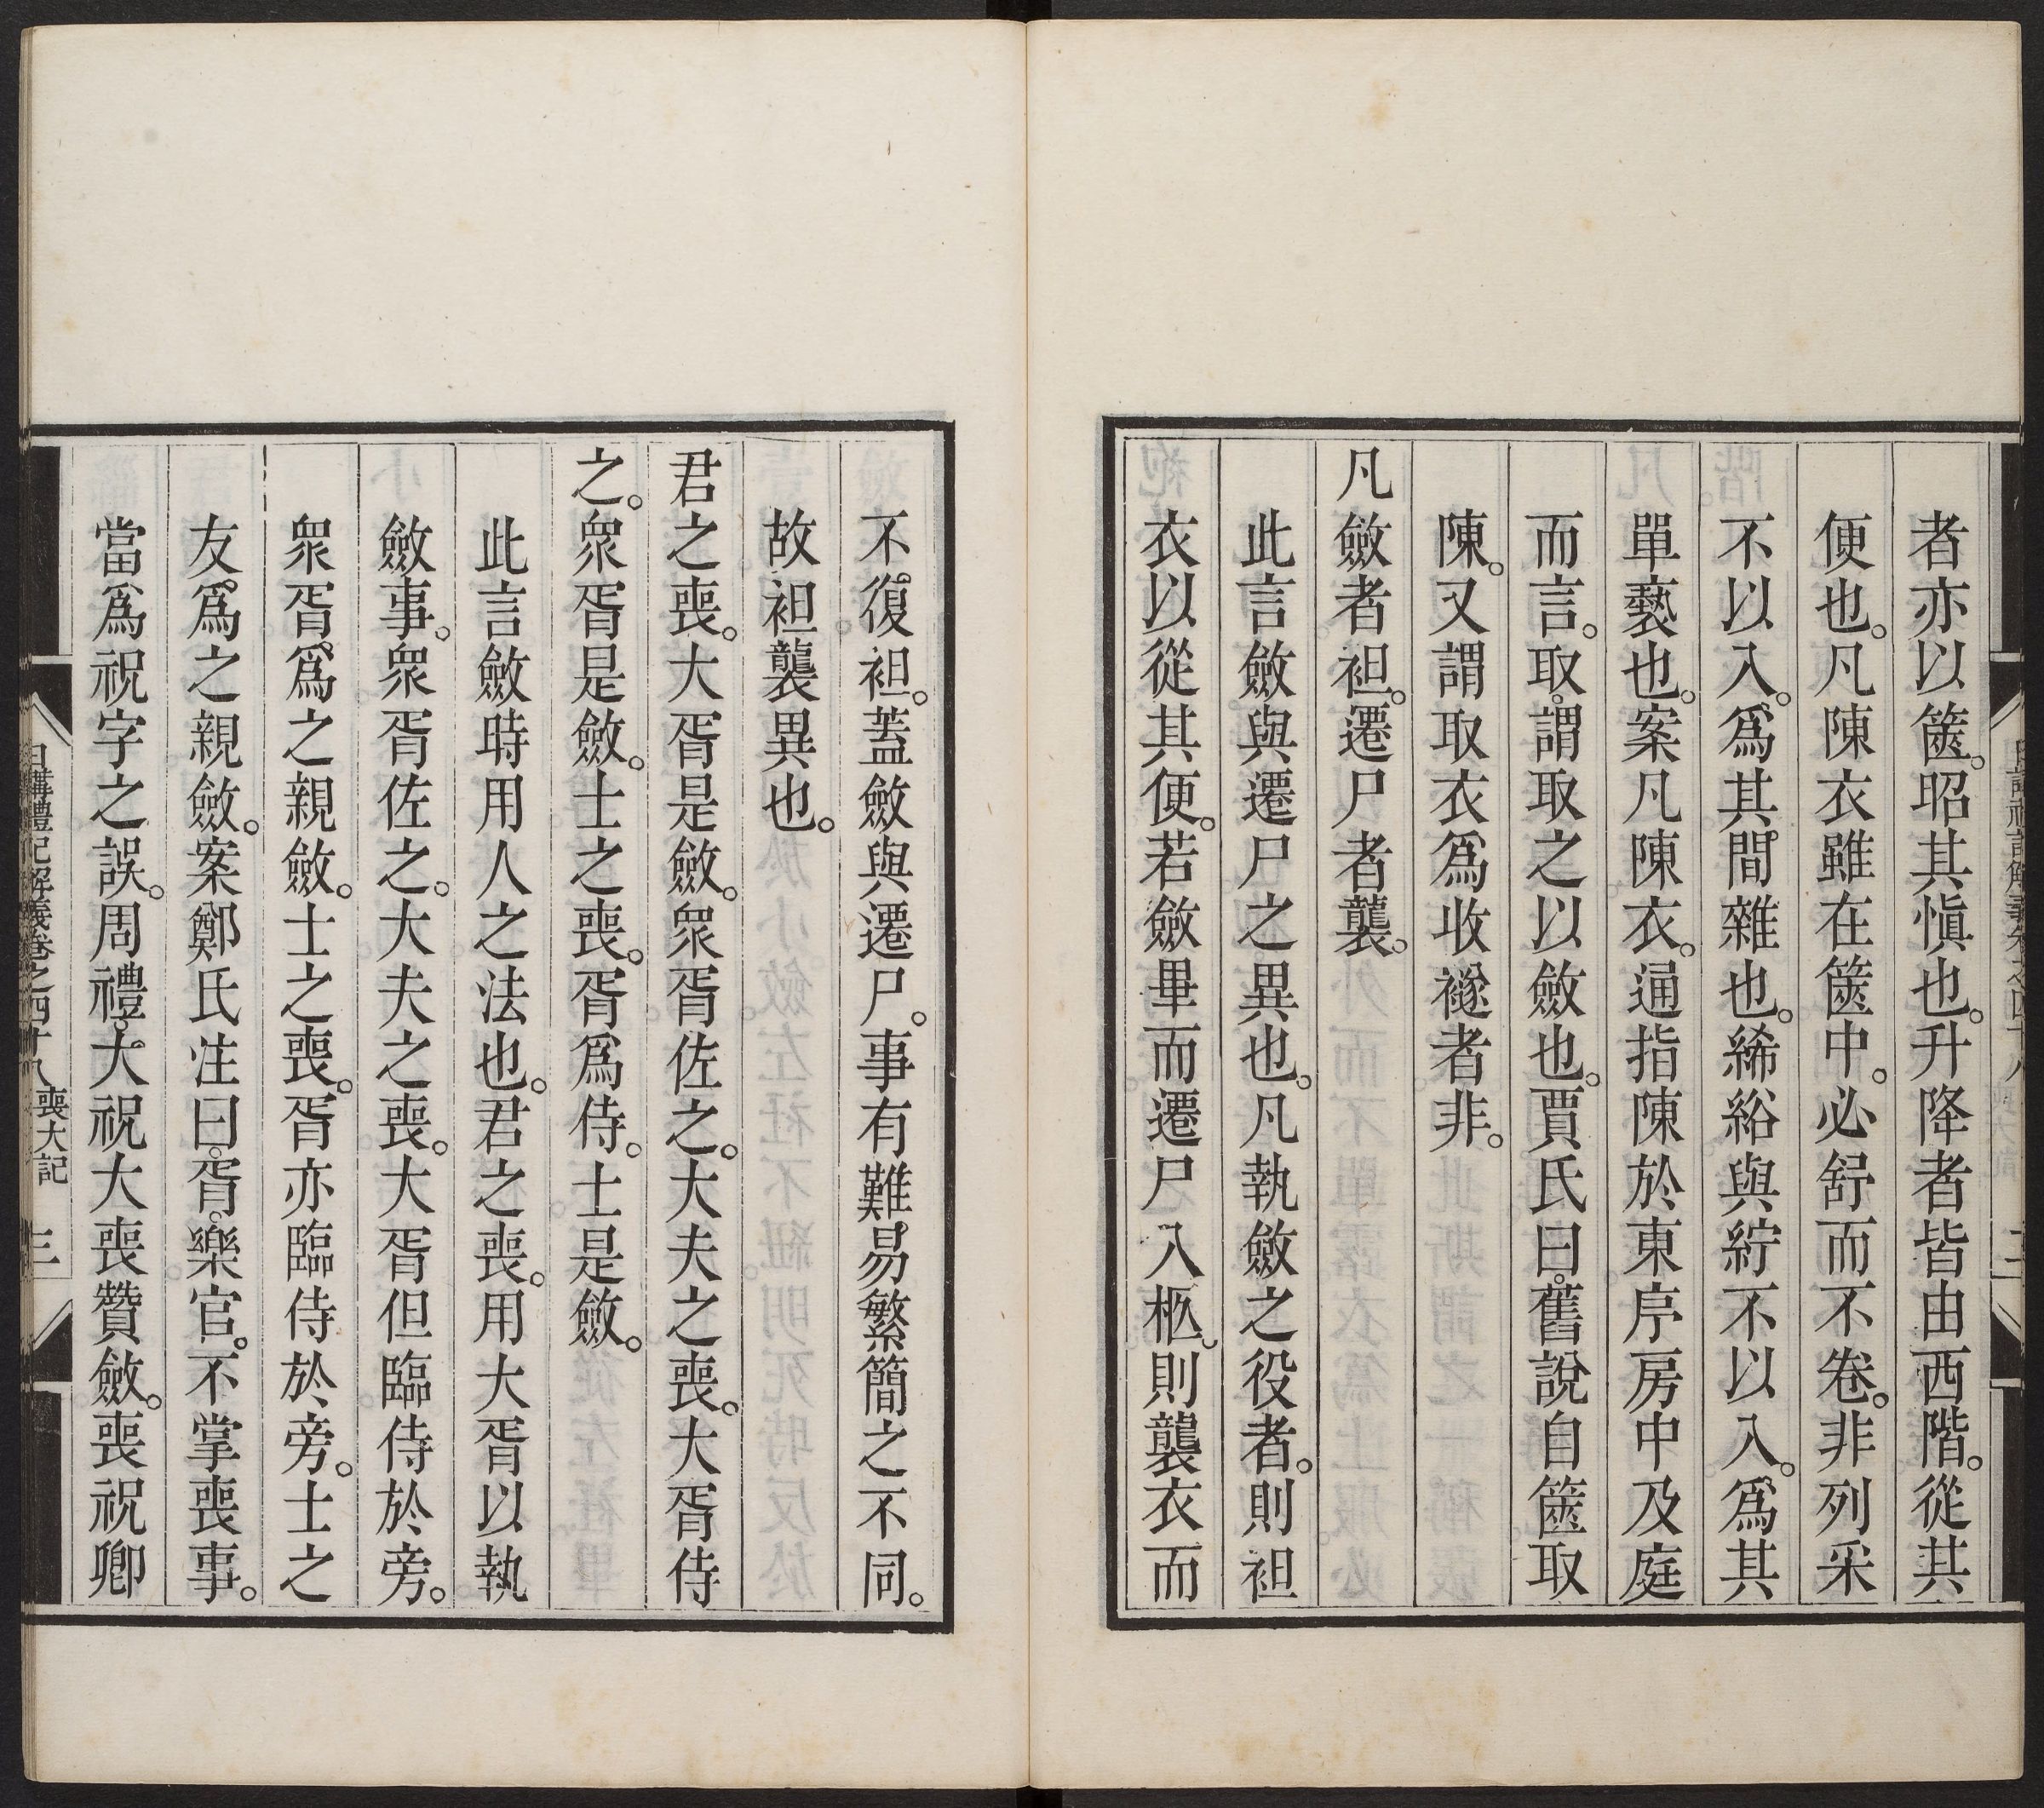 者亦以篋。昭其愼也。升降者皆由西階。從其
便也。凡陳衣雖在篋中。必舒而不卷。非列采
不以入。爲其間雜也。絺綌與紵不以入。爲其
單褻也。案凡陳衣。通指陳於東序房中及庭
而言。取。謂取之以斂也。賈氏曰。舊說自篋取
陳。又謂取衣爲收襚者非。
凡斂者袒。遷尸者襲。
此言斂與遷尸之異也。凡執斂之役者。則袒
衣以從其便。若斂畢而遷尸入柩。則襲衣而
不復袒。蓋斂與遷尸。事有難易繁簡之不同。
故袒襲異也。
君之喪。大胥是斂。衆胥佐之。大夫之喪。大胥侍
之。衆胥是斂。士之喪。胥爲侍。士是斂。
此言斂時用人之法也。君之喪。用大胥以執
斂事。衆胥佐之。大夫之喪。大胥但臨侍於旁。
衆胥爲之親斂。士之喪。胥亦臨侍於旁。士之
友爲之親斂。案鄭氏注曰。胥。樂官。不掌喪事。
當爲祝字之誤。周禮。大祝大喪贊斂。喪祝卿
日講禮記解義卷之四十八 喪大記 三